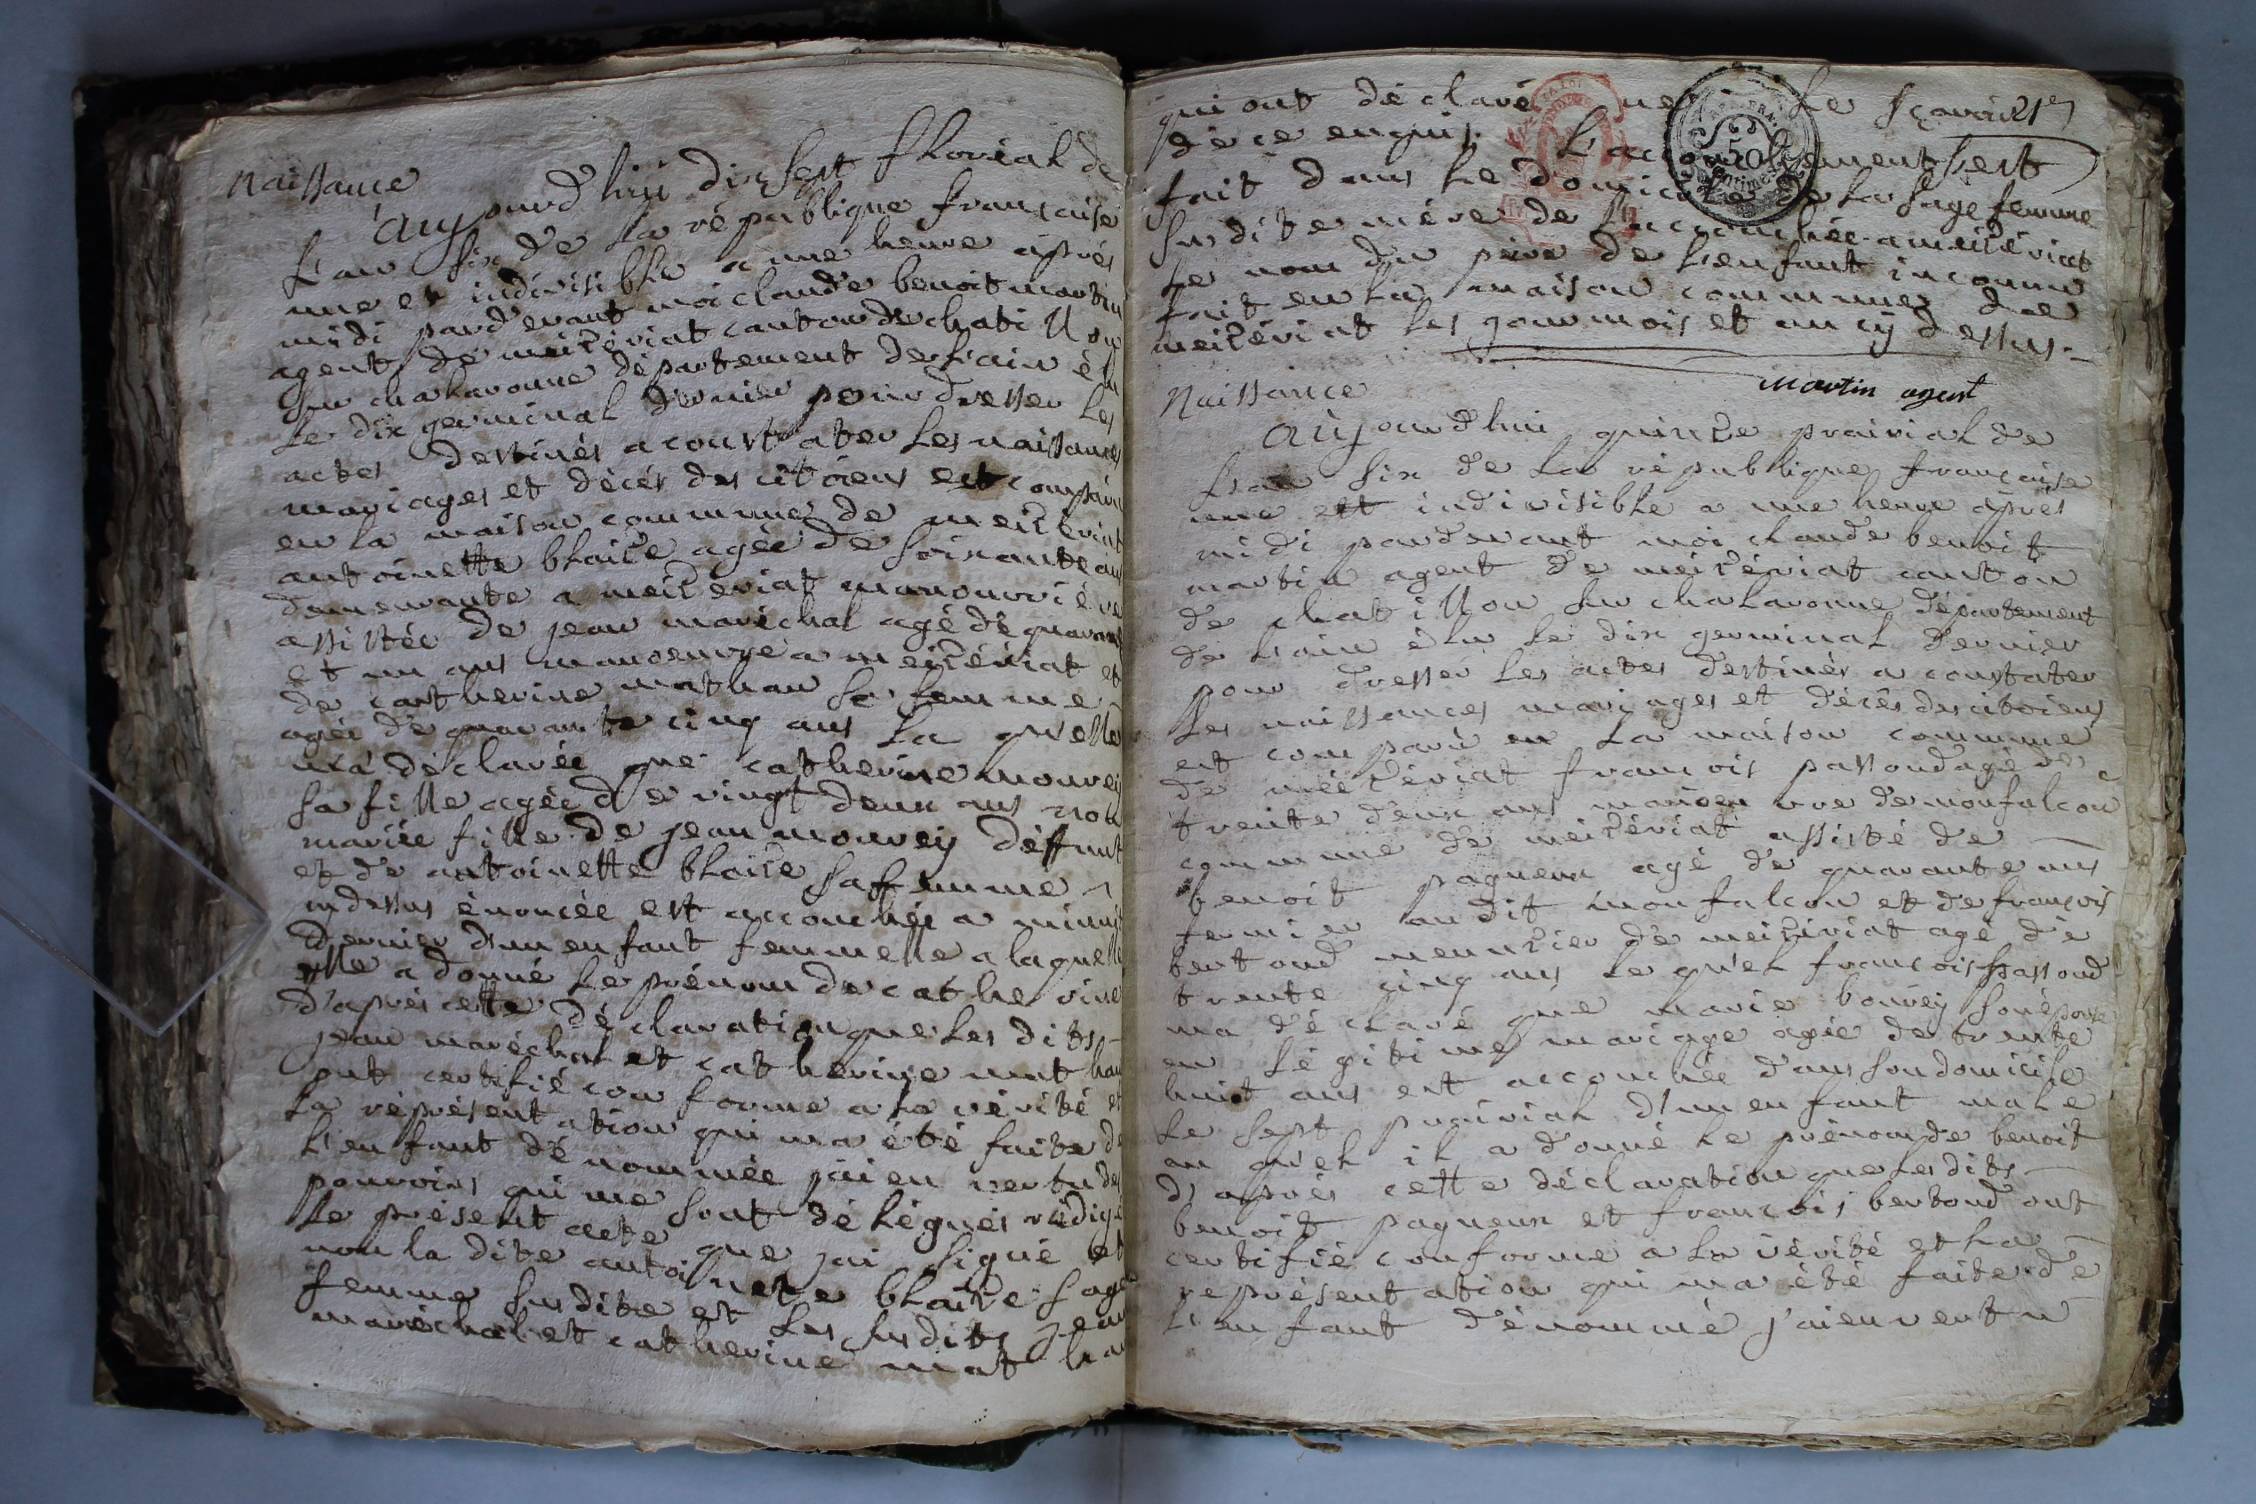 Naissance
aujourd'hui dix sept floréal de
L'an six de La république francaise
une et indivisible a une heure après
midi pardevant moi claude benoit martin
agent de meizériat canton de chatillon
sur chalaronne département de L'ain élu
Le dix germinal dernier pour dresser Les
actes destinés a constater Les naissances
mariages et décés des citoiens est comparu
en La maison commune de meizériat
antoinette blaize agée de soixante ans
demeurante a meizériat manouvrière
assistée de jean maréchal agé de quarante
et un ans manoeuvre a meizériat et
de catherine mathau sa femme
agée de quarante cinq ans La quelle
m'a déclarée que catherine mourey
sa fille agée de vingt deux ans non
mariée fille de jean mourey déffunt
et de antoinette blaize sa femme
cy dessus énoncée est accouchée a minuit
dernier d'un enfant femmelle a laquelle
elle a donné Le prénom de catherine
d'après cette déclaration que Les dits
jean maréchal et catherine mathau
ont certifié conforme a La vérité et
La réprésentation qui m'a été faite de
L'enfant dénommée j'ai en vertu des
pouvoirs qui me sont délégués rédigé
Le présent acte que j'ai signé et
non la dite antoinette blaize sage
femme susdite et Les susdits jean
maréchal et catherine mathau
qui ont déclaré ne Le sçavoir
de ce enquis. L'accouchement s'est
fait dans Le domicile de La sage femme
susdite mére de L'accouchée a meizériat
Le nom du père de L'enfant inconnu
fait en La maison commune de
meizériat Les jour mois et an cy dessus.
martin agent
REP. FRA.
50
centimes
Naissance
aujourd'hui quinze prairial de
L'an six de La république française
une et indivisible a une heure après
midi pardevant moi claude benoit
martin agent de meizériat canton
de chatillon sur chalaronne département
de L'ain élu Le dix germinal dernier
pour dresser Les actes destinés a constater
Les naissances mariages et décés des citoiens
est comparu en La maison commune
de meizériat francois passoud agé de
trente deux ans manoeuvre de monfalcon
commune de meizériat assisté de
benoit pagneux agé de quarante ans
fermier audit monfalcon et de françois
bertoud meunzier de meizériat agé de
trente cinq ans Le quel francois passoud
m'a déclaré que marie bouvey son épouse
en Légitime mariage agée de trente
huit ans est accouchée dans son domicile
Le sept prairial d'un enfant male
au quel il a donné Le prénom de benoit
d'après cette déclaration que Les dits
benoit pagneux et françois bertoud ont
certifié conforme a La vérité et La
représentation qui m'a été faite de
L'enfant dénommé j'ai en vertu